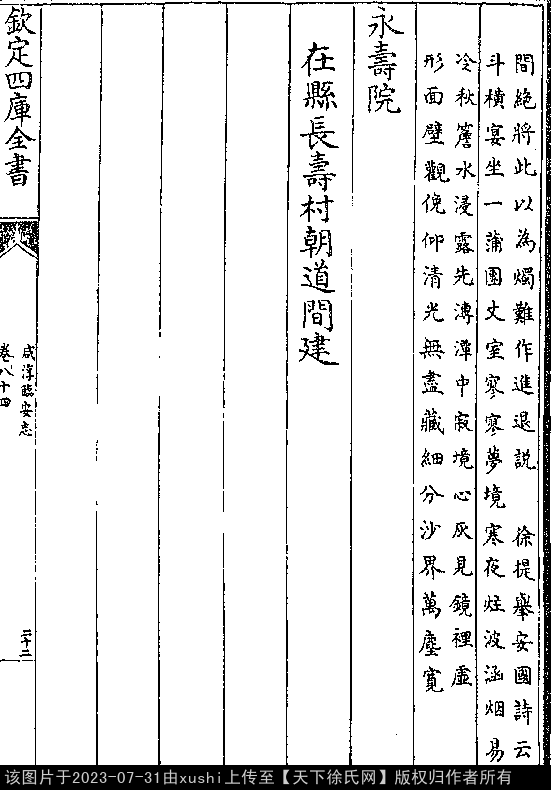 間絶將此以為燭難作進退説　徐提舉安國詩云
斗横宴坐一蒲團丈室寥寥夢境寒夜炷波涵烟易
冷秋簷水浸露先漙潭中寂境心灰見鏡裡虛
形面壁觀俛仰清光無盡藏細分沙界萬塵寛
永壽院
在縣長壽村朝道間建
欽定四庫全書
咸淳臨安志
卷八十四
二十二
该图片于2023-07-31由xushi上传至【天下徐氏网】版权归作者所有